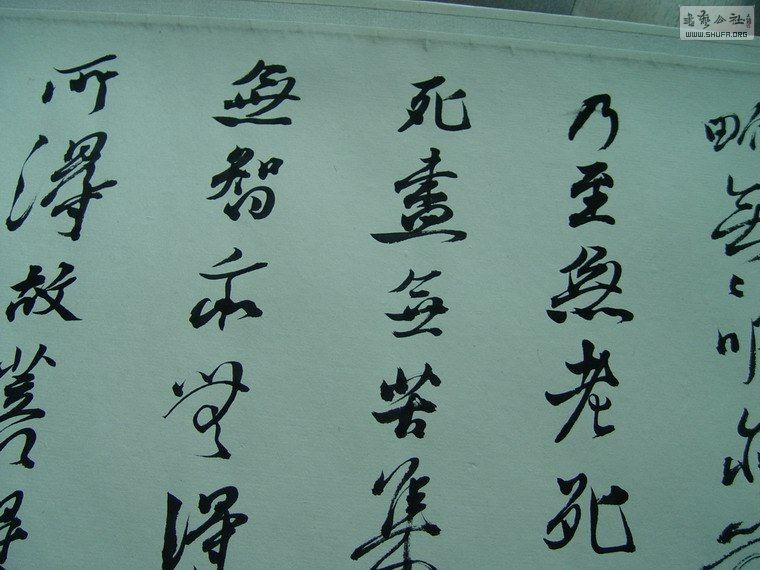 畍無〻明亦
乃至無老死
死盡無苦集
無智亦無得
所得故菩
書藝公社
WWW.SHUFA.ORG